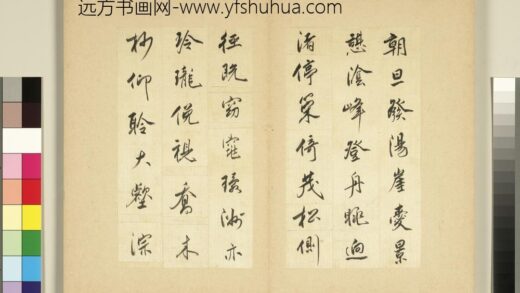 远方书画网-www.yfshuhua.com
朝旦發陽崖景
憩陰峰登舟眺迥
渚停策倚茂松側
徑既窈窕環洲亦
玲瓏俛視喬木
杪仰聆大壑淙